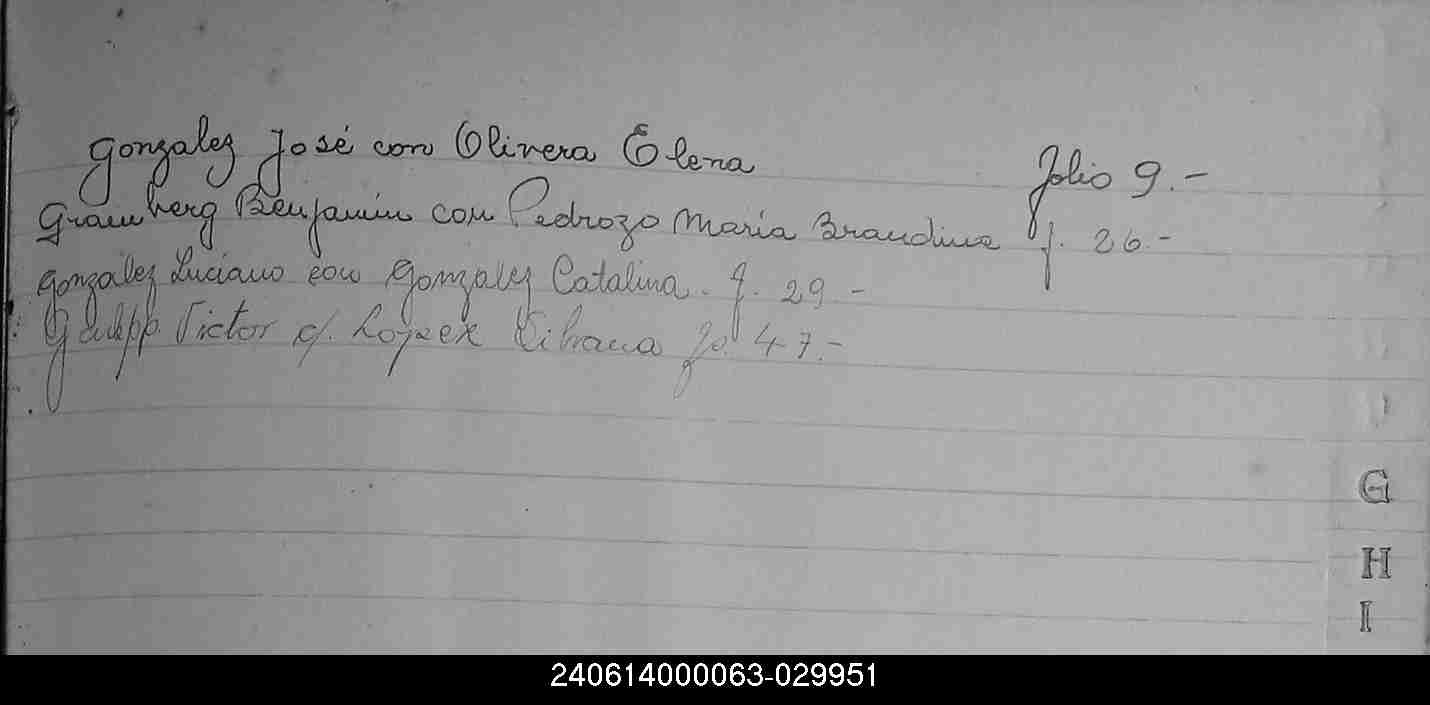 Gonzalez José con Olivera Elena Folio 9.-
Gramberg Benjamin con Pedrozo Maria Brandina f. 26.-
Gonzalez Luciano con Gonzalez Catalina. f. 29 -
Victor c/. Lopez fo. 47.-
G
H
I
240614000063-029951